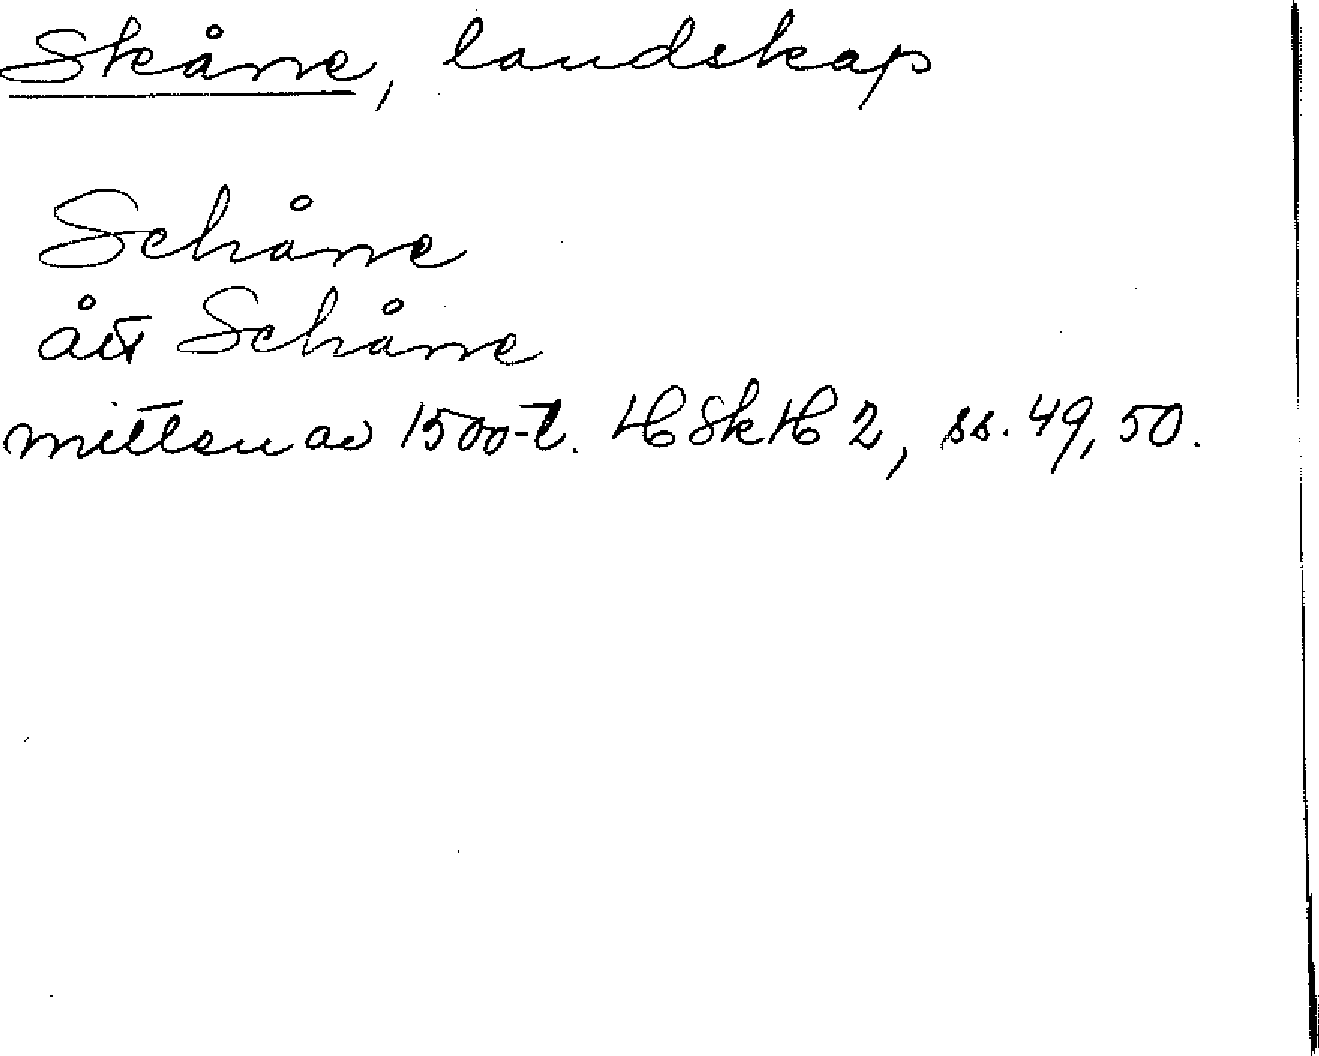 Skåne, landskap
Schåne
ått Schåne
mitten av 1500-t. HSkH 2, ss. 49, 50.